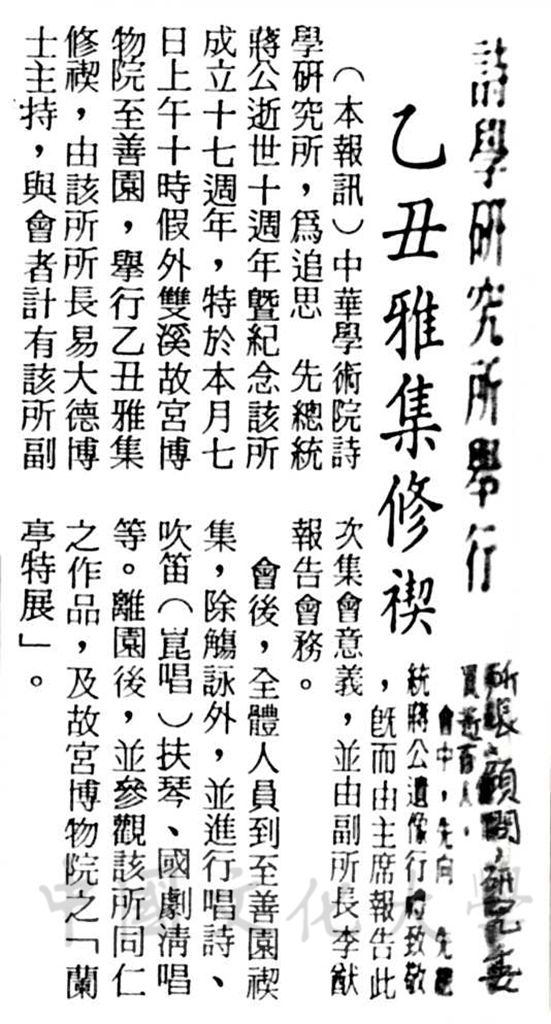 詩學研究所舉行
乙丑雅集修禊
（本報訊）中華學術院詩
學研究所，爲追思　先總統
蔣公逝世十週年暨紀念該所
成立十七週年，特於本月七
日上午十時假外雙溪故宮博
物院至善園，舉行乙丑雅集
修禊，由該所所長易大德博
士主持，與會者計有該所副
所長、顧問，研究委
員近百人。
會中，先向　先總
統蔣公遺像行禮致敬
，旣而由主席報告此
次集會意義，並由副所長李猷
報告會務。
會後，全體人員到至善園禊
集，除觴詠外，並進行唱詩、
吹笛（崑唱）扶琴、國劇淸唱
等。離園後，並參觀該所同仁
之作品，及故宮博物院之「蘭
亭特展」。
中國文化大學